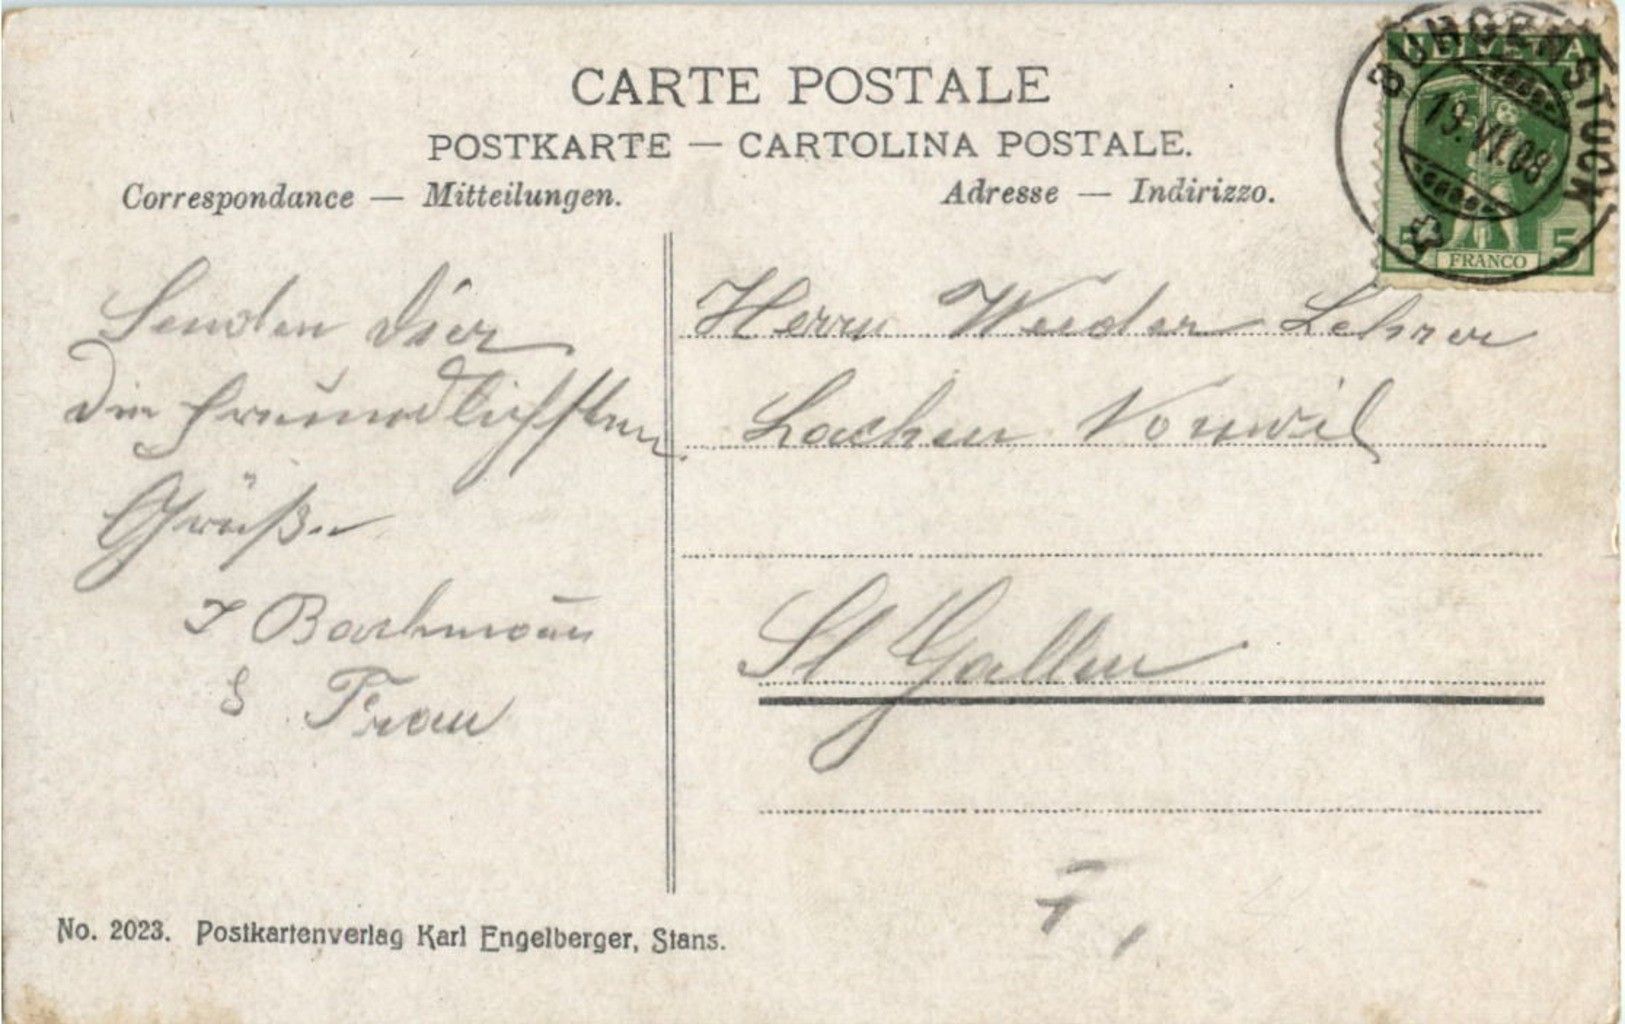 CARTE POSTALE
POSTKARTE — CARTOLINA POSTALE.
Correspondance — Mitteilungen.
Adresse — Indirizzo.
BÜRGENSTOCK
19.VI.08
HELVETIA
5 FRANCO 5
Senden Dier
die freundlichsten
Grüße
J Bachmann
& Frau
Herrn Weder Lehrer
Lachen Vonwil
St Gallen
No. 2023. Postkartenverlag Karl Engelberger, Stans.